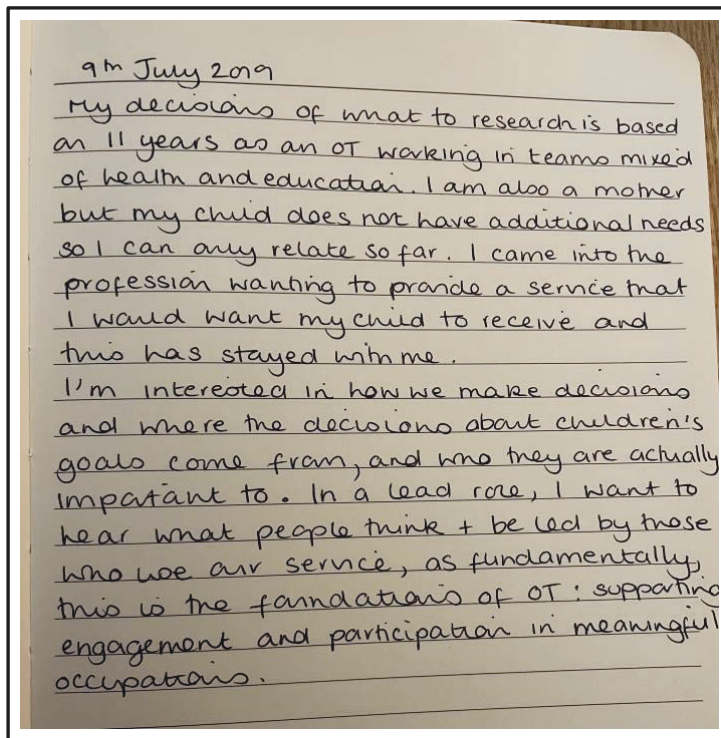 9th July 2019
My decisions of what to research is based
on 11 years as an OT working in teams mixed
of health and education. I am also a mother
but my child does not have additional needs
so I can only relate so far. I came into the
profession wanting to provide a service that
I would want my child to receive and
this has stayed with me.
I'm interested in how we make decisions
and where the decisions about children's
goals come from, and who they are actually
important to. In a lead role, I want to
hear what people think + be led by those
who use our service, as fundamentally,
this is the foundations of OT: supporting
engagement and participation in meaningful
occupations.